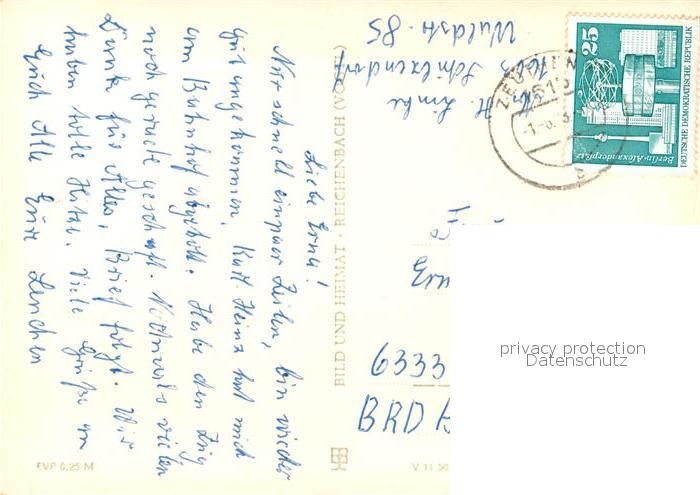 Liebe Erna!
Nur schnell ein paar Zeilen, bin wieder
gut angekommen, Karl-Heinz hat mich
vom Bahnhof abgeholt. Habe den Zug
noch gerade geschafft. Nochmals vielen
Dank für Alles, Brief folgt. Wir
haben tolle Hitze. Viele Grüße an
Euch Alle Eure Lenchen
EVP 0,25 M
BILD UND HEIMAT · REICHENBACH (VOGTL)
V 11 50
H. Limke
Waldstr. 85
ZEUTHEN
1615
25
Berlin-Alexanderplatz
DEUTSCHE DEMOKRATISCHE REPUBLIK
6333
BRD
privacy protection
Datenschutz